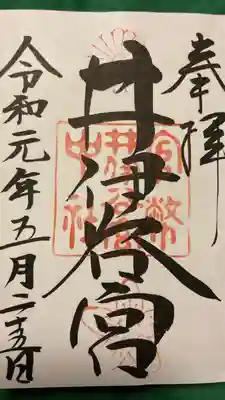 奉拝
井伊谷宮
官幣中社
井伊谷宮
令和元年五月二十五日